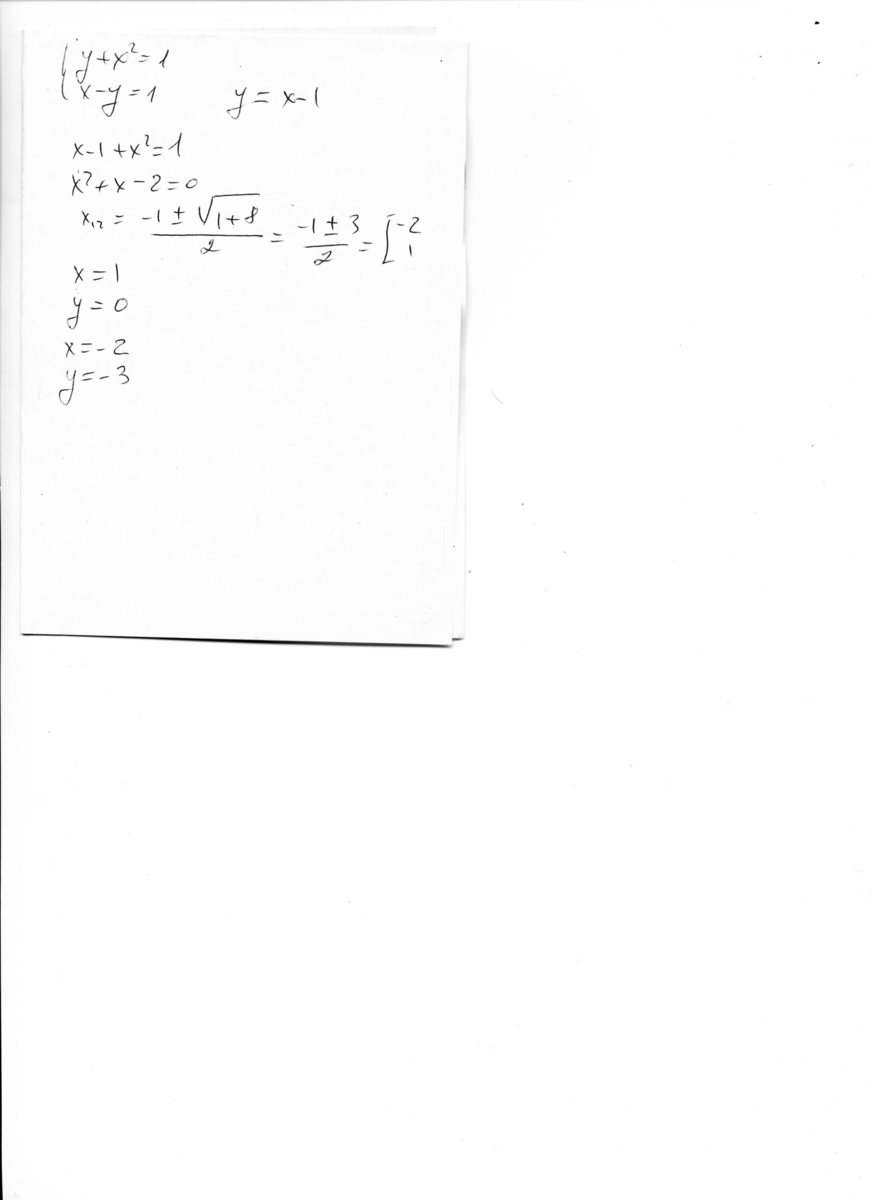 { y+x²=1
x-y=1 y=x-1
x-1+x²=1
x²+x-2=0
x₁₂ = (-1±√(1+8))/2 = (-1±3)/2 = [-2
1
x=1
y=0
x=-2
y=-3